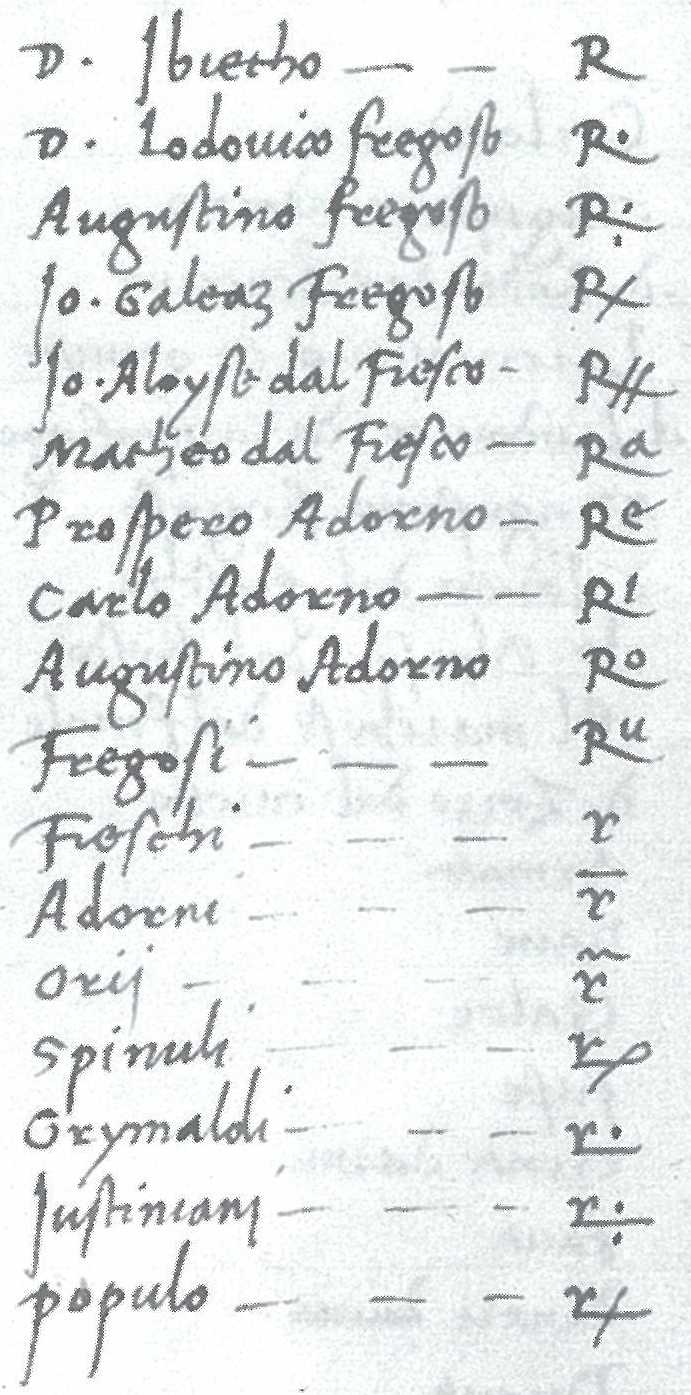 D. Ibietho — — R
D. Lodovico fregoso R.
Augustino fregoso R:
Jo. Galeaz Fregoso R/
Jo. Aloyse dal Fiesco - R//
Matheo dal Fiesco — Ra
Prospero Adorno — Re
Carlo Adorno — — Ri
Augustino Adorno Ro
Fregosi — — — Ru
Fieschi — — — r
Adorni — — — r̄
Orij — — — r̃
Spinuli — — —
Grymaldi — — — r.
Justiniani — — — r:
populo — — — r/